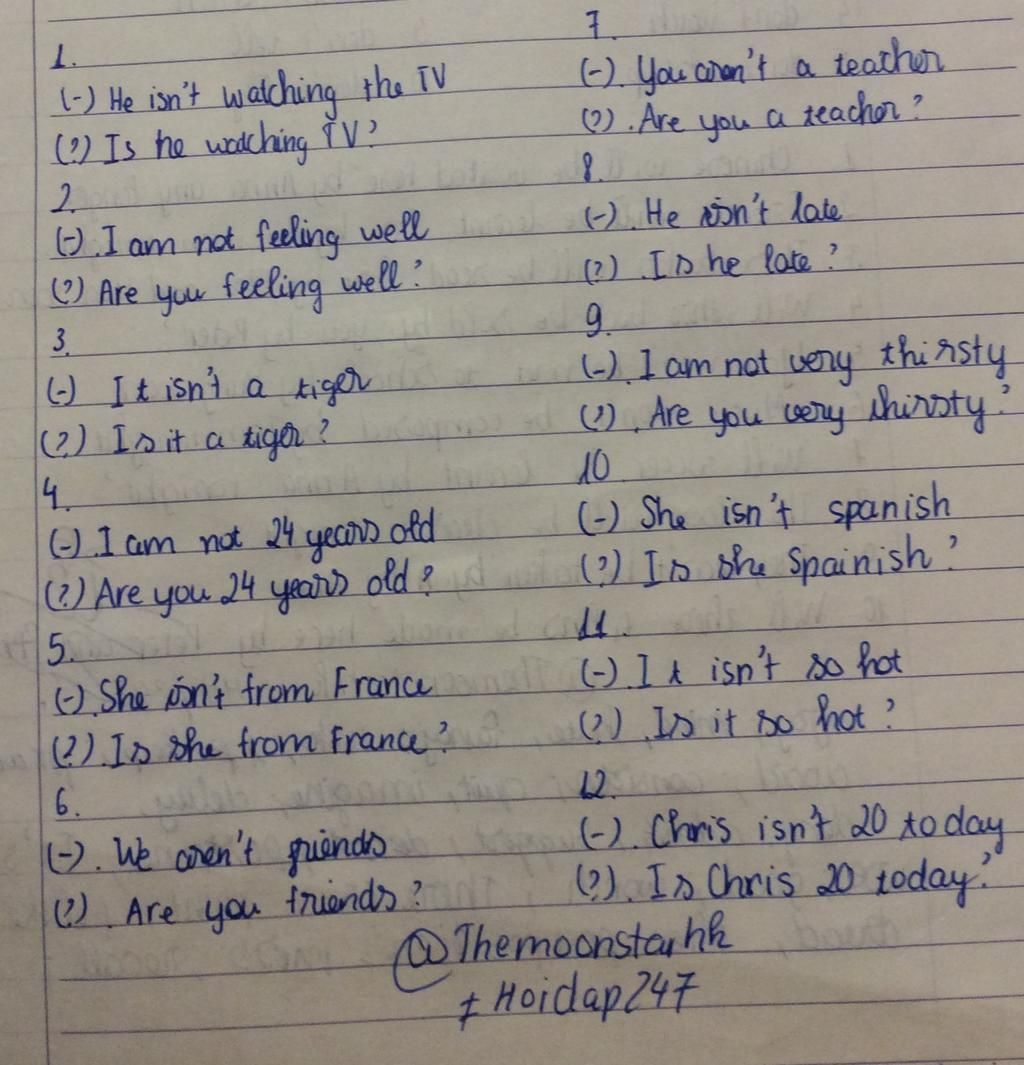 1.
(-) He isn't watching the TV
(?) Is he watching TV?
2.
(-). I am not feeling well
(?) Are you feeling well?
3.
(-) It isn't a tiger
(?) Is it a tiger?
4.
(-). I am not 24 years old
(?) Are you 24 years old?
5.
(-). She isn't from France
(?). Is she from France?
6.
(-). We aren't friends
(?) Are you friends?
7.
(-). You aren't a teacher
(?). Are you a teacher?
8.
(-). He isn't late
(?). Is he late?
9.
(-). I am not very thirsty
(?). Are you very thirsty?
10
(-) She isn't spanish
(?) Is she Spainish?
11.
(-). It isn't so hot
(?). Is it so hot?
12.
(-). Chris isn't 20 today
(?). Is Chris 20 today?
@Themoonstarhk
# Hoidap247